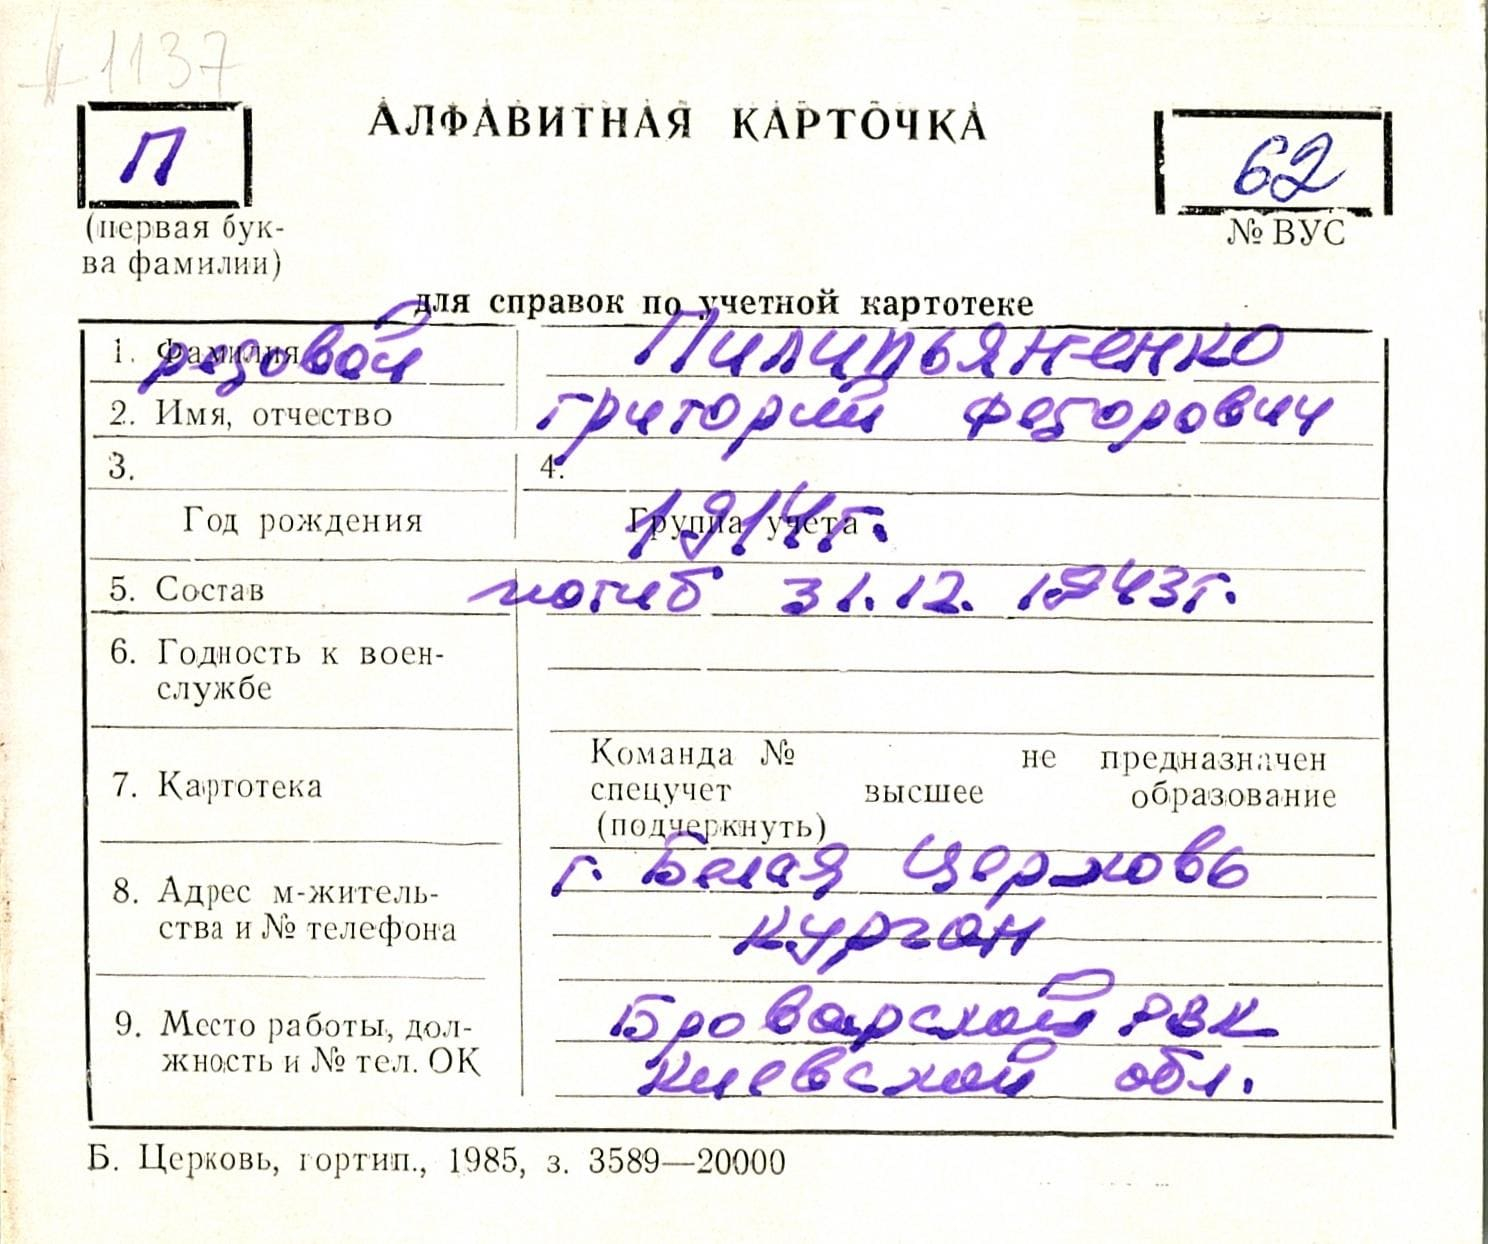 1137
АЛФАВИТНАЯ КАРТОЧКА
П
62
(первая бук-
ва фамилии)
№ ВУС
для справок по учетной картотеке
1. Фамилия рядовой Пилипьяненко
2. Имя, отчество Григорий Федорович
3. 4.
Год рождения Группа учета 1914г.
5. Состав погиб 31.12.1943г.
6. Годность к воен-
службе
7. Картотека
Команда № не предназначен
спецучет высшее образование
(подчеркнуть)
8. Адрес м-житель-
ства и № телефона
г. Белая Церковь
Курган
9. Место работы, дол-
жность и № тел. ОК
Броварской РВК
Киевской обл.
Б. Церковь, гортип., 1985, з. 3589—20000